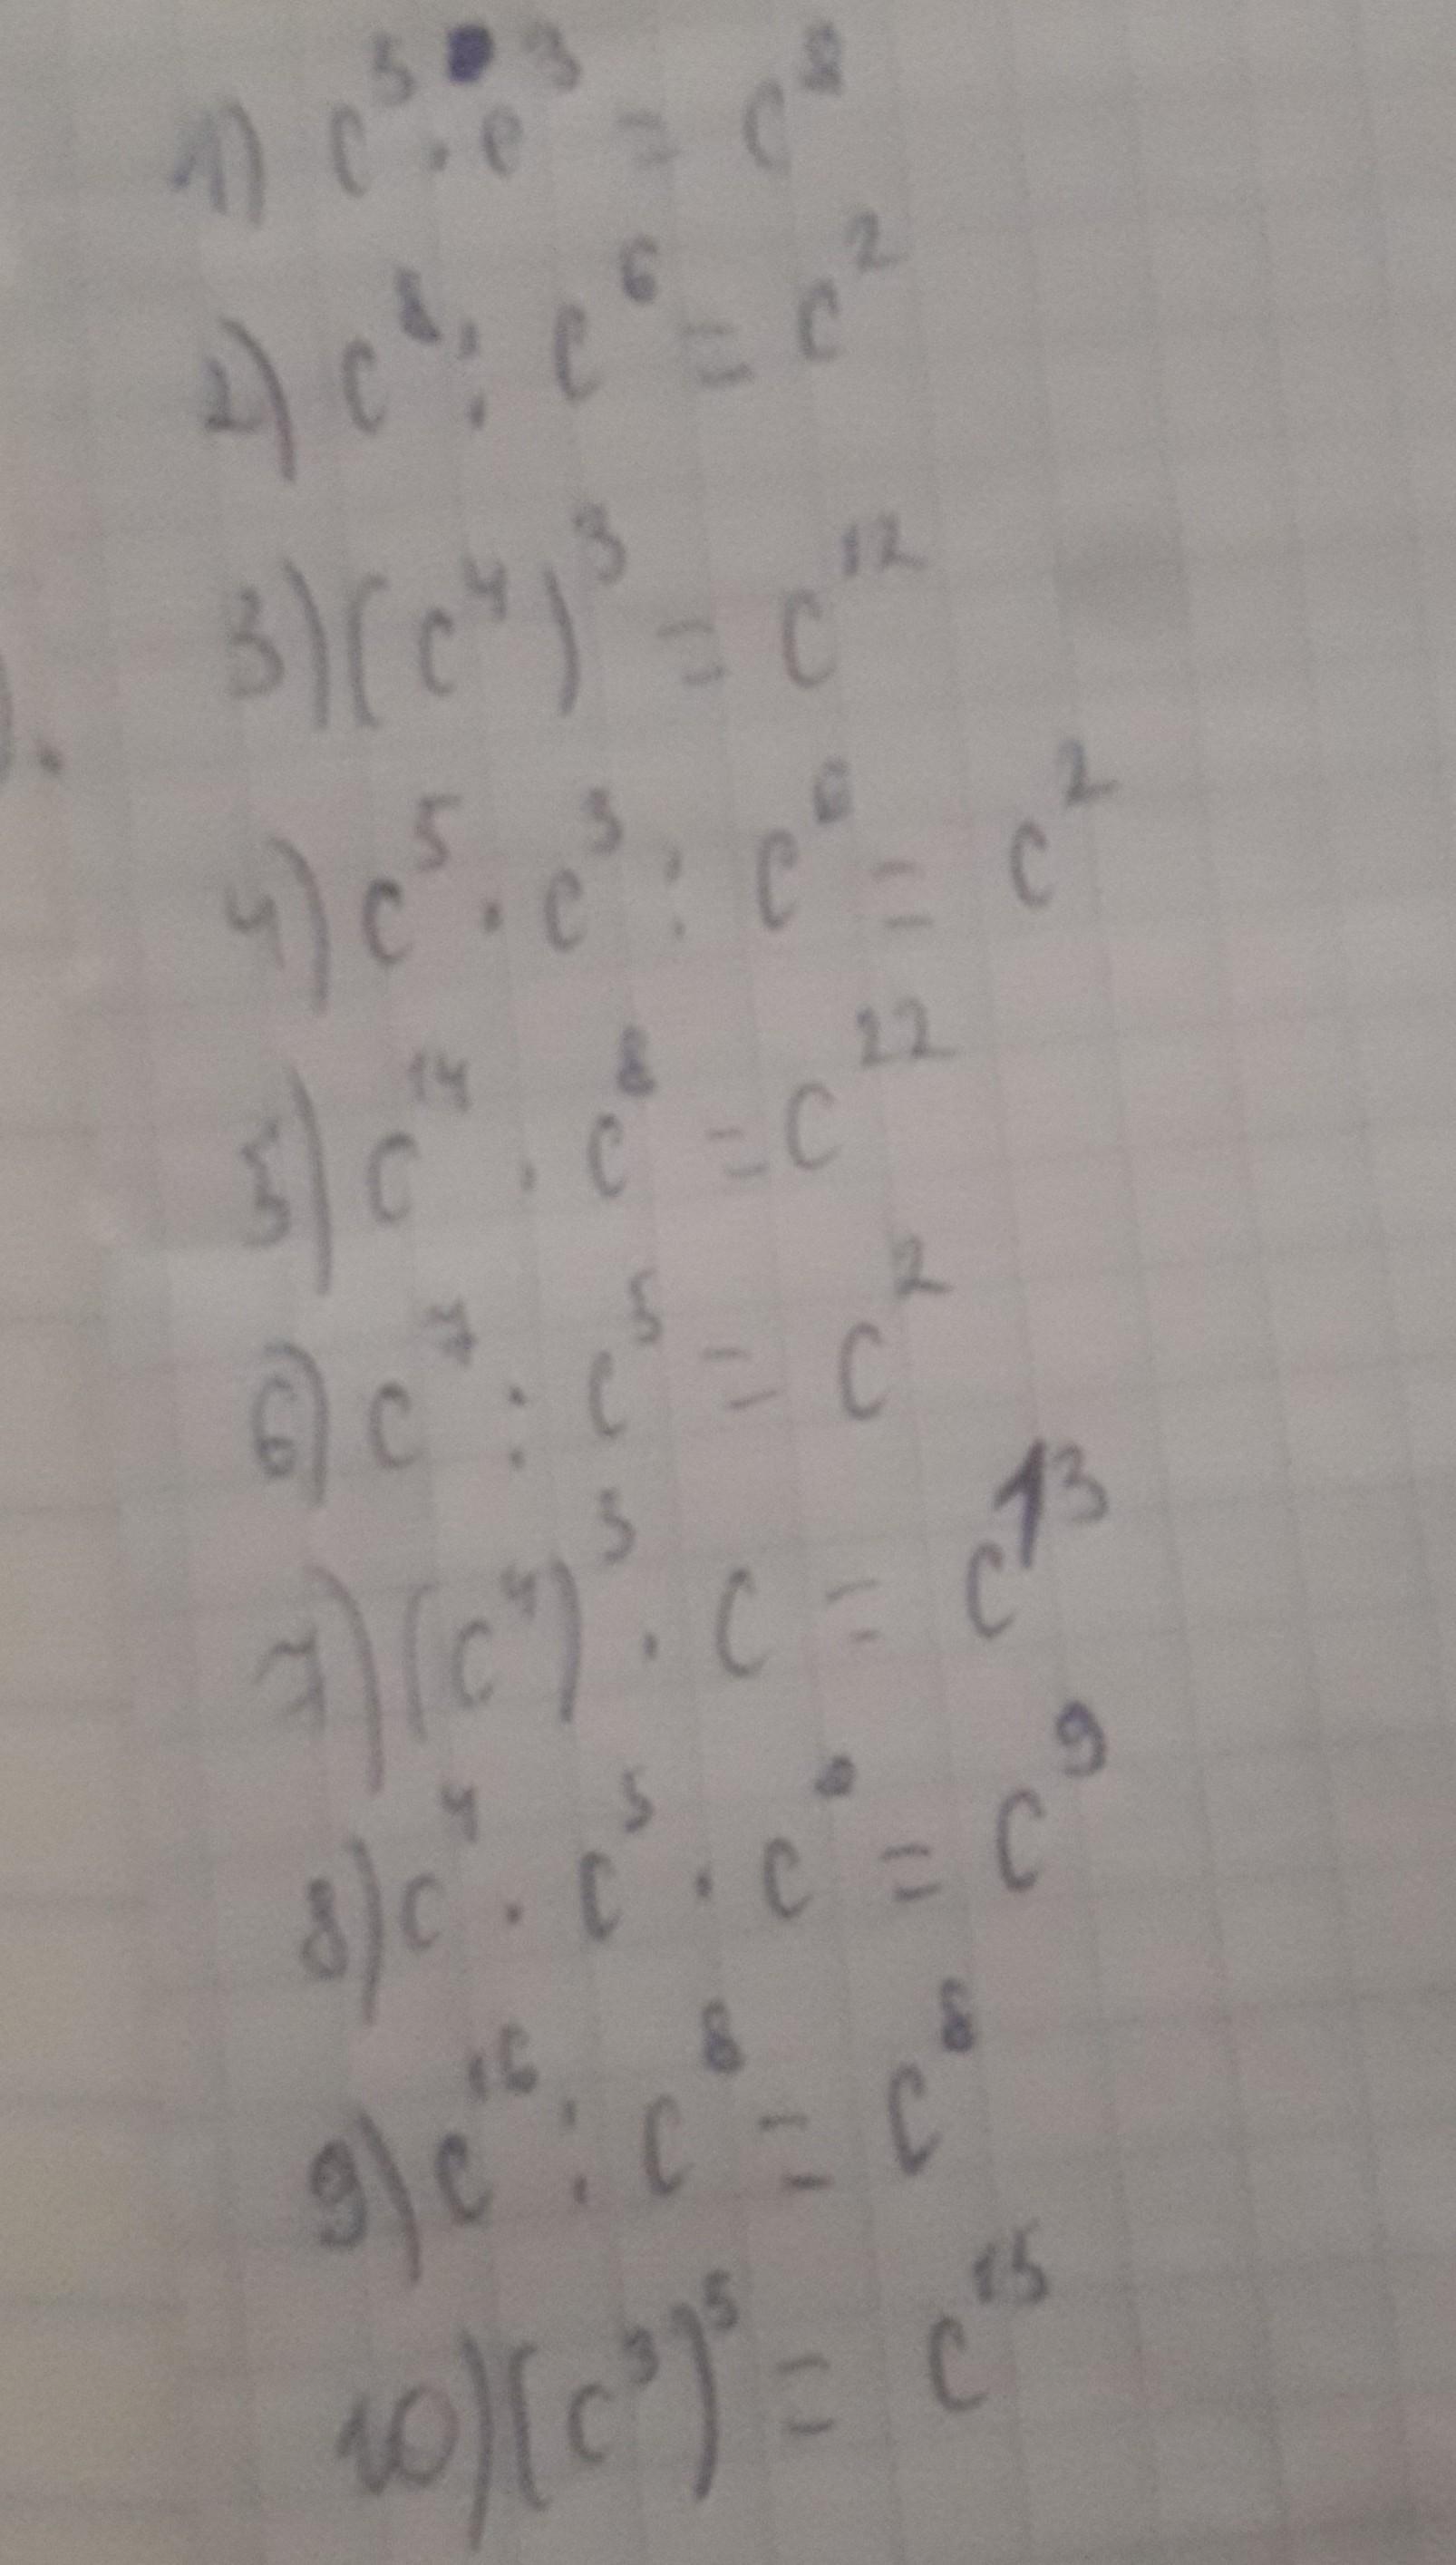 1) c⁵ · c³ = c⁸
2) c⁸ : c⁶ = c²
3) (c⁴)³ = c¹²
4) c⁵ · c³ : c⁶ = c²
5) c¹⁴ · c⁸ = c²²
6) c⁷ : c⁵ = c²
7) (c⁴)³ · c = c¹³
8) c⁴ · c⁵ · c⁰ = c⁹
9) c¹⁶ : c⁸ = c⁸
10) (c³)⁵ = c¹⁵